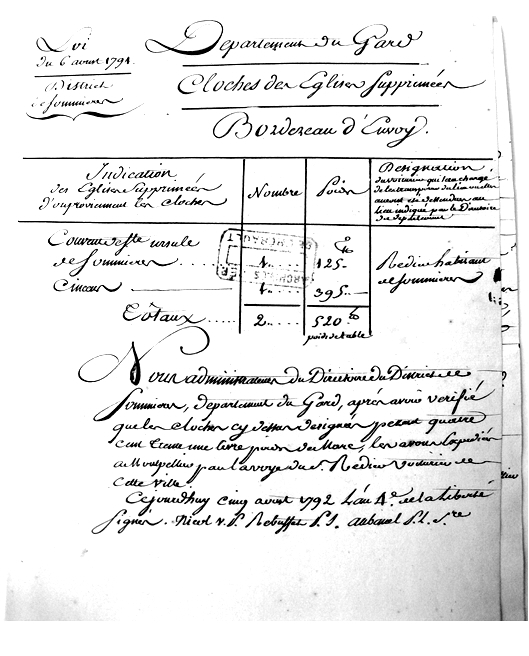 Loi
du 6 avril 1791
District
de Sommieres
Departement du Gard
Cloches des Eglises Supprimées
Bordereau d'Envoy.
Indication
des Eglises Supprimées
d'ou proviennent les cloches
Nombre
Poids
Designation
du voiturier qui sera chargé
de les transporter du lieu ou elles
auront été deposées au
lieu indiqué par le Directoire
du departement
Couvent de Ste ursule
de Sommieres
1
125
Redier habitant
de Sommieres
1
395
Totaux
2
520
poids de table
ARCHIVES
DE L'HERAULT
Nous administrateurs du Directoire du District de
Sommieres, departement du Gard, après avoir verifié
que les cloches cy dessus designées pezent quatre
cent trente une livre poids de Marc, les avons Expediées
a Montpellier par la voye du Sr. Redier voiturier de
cette ville.
Cejourdhuy cinq avril 1792 L'an 4e de la Liberté
signés. Ricol v. P. Rebuffat P. S. aubanel P. L. Sre